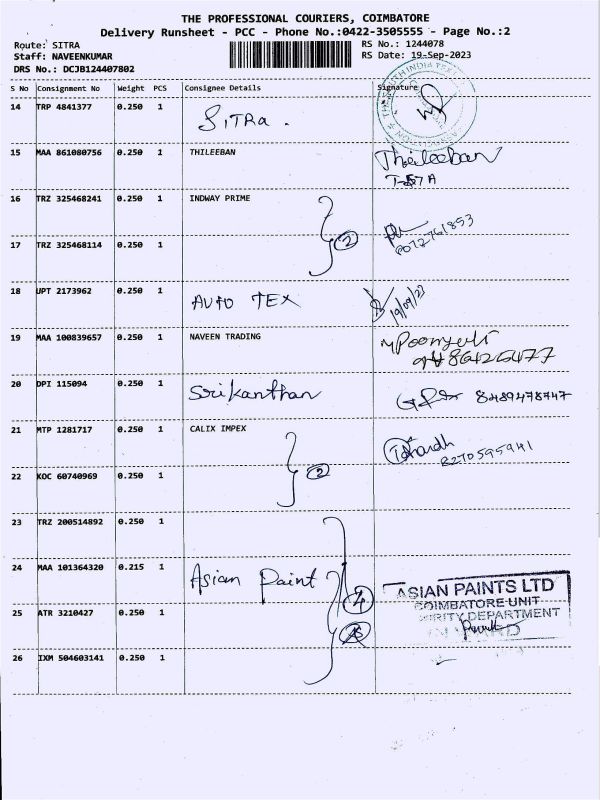 THE PROFESSIONAL COURIERS, COIMBATORE
Delivery Runsheet - PCC - Phone No.:0422-3505555 - Page No.:2
Route: SITRA
RS No.: 1244078
Staff: NAVEENKUMAR
RS Date: 19-Sep-2023
DRS No.: DCJB124407802
S No Consignment No Weight PCS Consignee Details Signature
14 TRP 4841377 0.250 1 SITRA .
15 MAA 861080756 0.250 1 THILEEBAN Thileeban
16 TRZ 325468241 0.250 1 INDWAY PRIME
2
17 TRZ 325468114 0.250 1
18 UPT 2173962 0.250 1 AUTO TEX 19/09/23
19 MAA 100839657 0.250 1 NAVEEN TRADING
20 DPI 115094 0.250 1 Srikanthan 8489478747
21 MTP 1281717 0.250 1 CALIX IMPEX
8270595941
22 KOC 60740969 0.250 1 2
23 TRZ 200514892 0.250 1
24 MAA 101364320 0.215 1 Asian Paint
ASIAN PAINTS LTD
COIMBATORE UNIT
25 ATR 3210427 0.250 1 4
DEPARTMENT
26 IXM 504603141 0.250 1